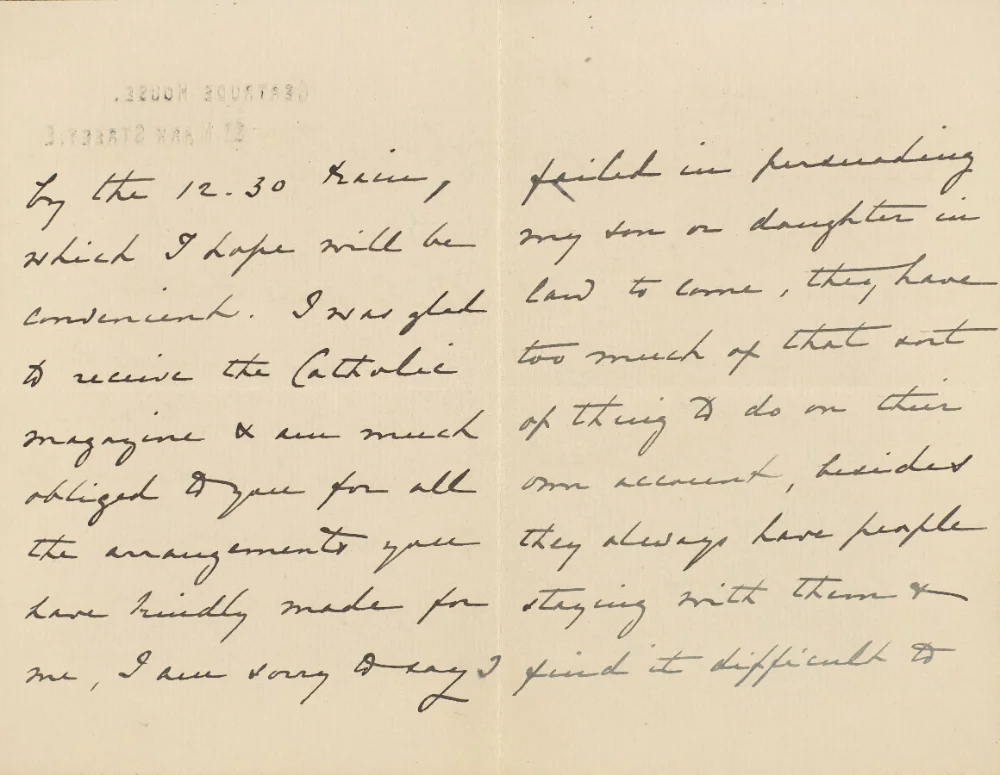 GERTRUDE HOUSE.
ST. MARK STREET. E.
by the 12.30 train,
which I hope will be
convenient. I was glad
to receive the Catholic
magazine & am much
obliged to you for all
the arrangements you
have kindly made for
me, I am sorry to say I
failed in persuading
my son or daughter in
law to come, they have
too much of that sort
of thing to do on their
own account, besides
they always have people
staying with them &
find it difficult to